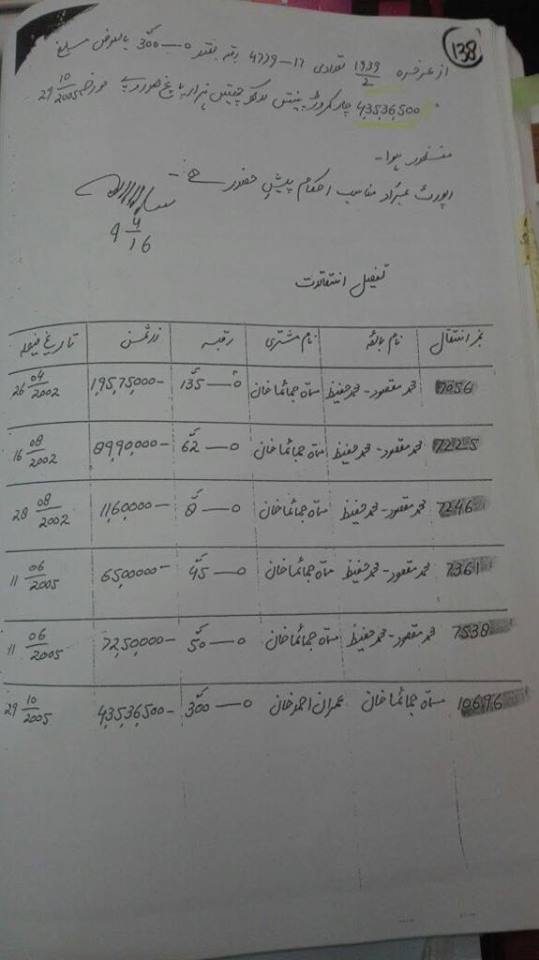 138
از عرفرہ 1939/2 تعدادی 17 — 4739 رقبہ بقدر 0 — 300 بالعوض مبلغ
43536500 چار کروڑ پینتیس لاکھ چھتیس ہزار پانچ صد روپے مورخہ 29 10/2005
منظور ہوا -
رپورٹ عرض مناسب احکام پیش حضور ہے -
9 4/16
تفصیل انتقالات
نمبر انتقال نام بائعہ نام مشتری رقبہ زرثمن تاریخ فیصلہ
7056 محمد مقصود - محمد حفیظ مساۃ جمائما خان 0 — 135 1,95,75,000 - 26 04/2002
7225 محمد مقصود - محمد حفیظ مساۃ جمائما خان 0 — 62 89,90,000 - 16 08/2002
7246 محمد مقصود - محمد حفیظ مساۃ جمائما خان 0 — 8 11,60,000 - 28 08/2002
7361 محمد مقصود - محمد حفیظ مساۃ جمائما خان 0 — 45 6500000 - 11 06/2005
7538 محمد مقصود - محمد حفیظ مساۃ جمائما خان 0 — 50 72,50,000 - 11 06/2005
10696 مساۃ جمائما خان عمران احمد خان 0 — 300 4,35,36,500 - 29 10/2005